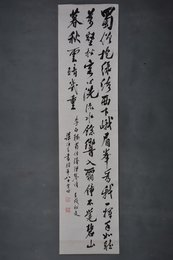 蜀僧抱綠綺西下峨眉峯為我一揮手如聽
萬壑松客心洗流水餘響入霜鐘不覺碧山
暮秋雲暗幾重